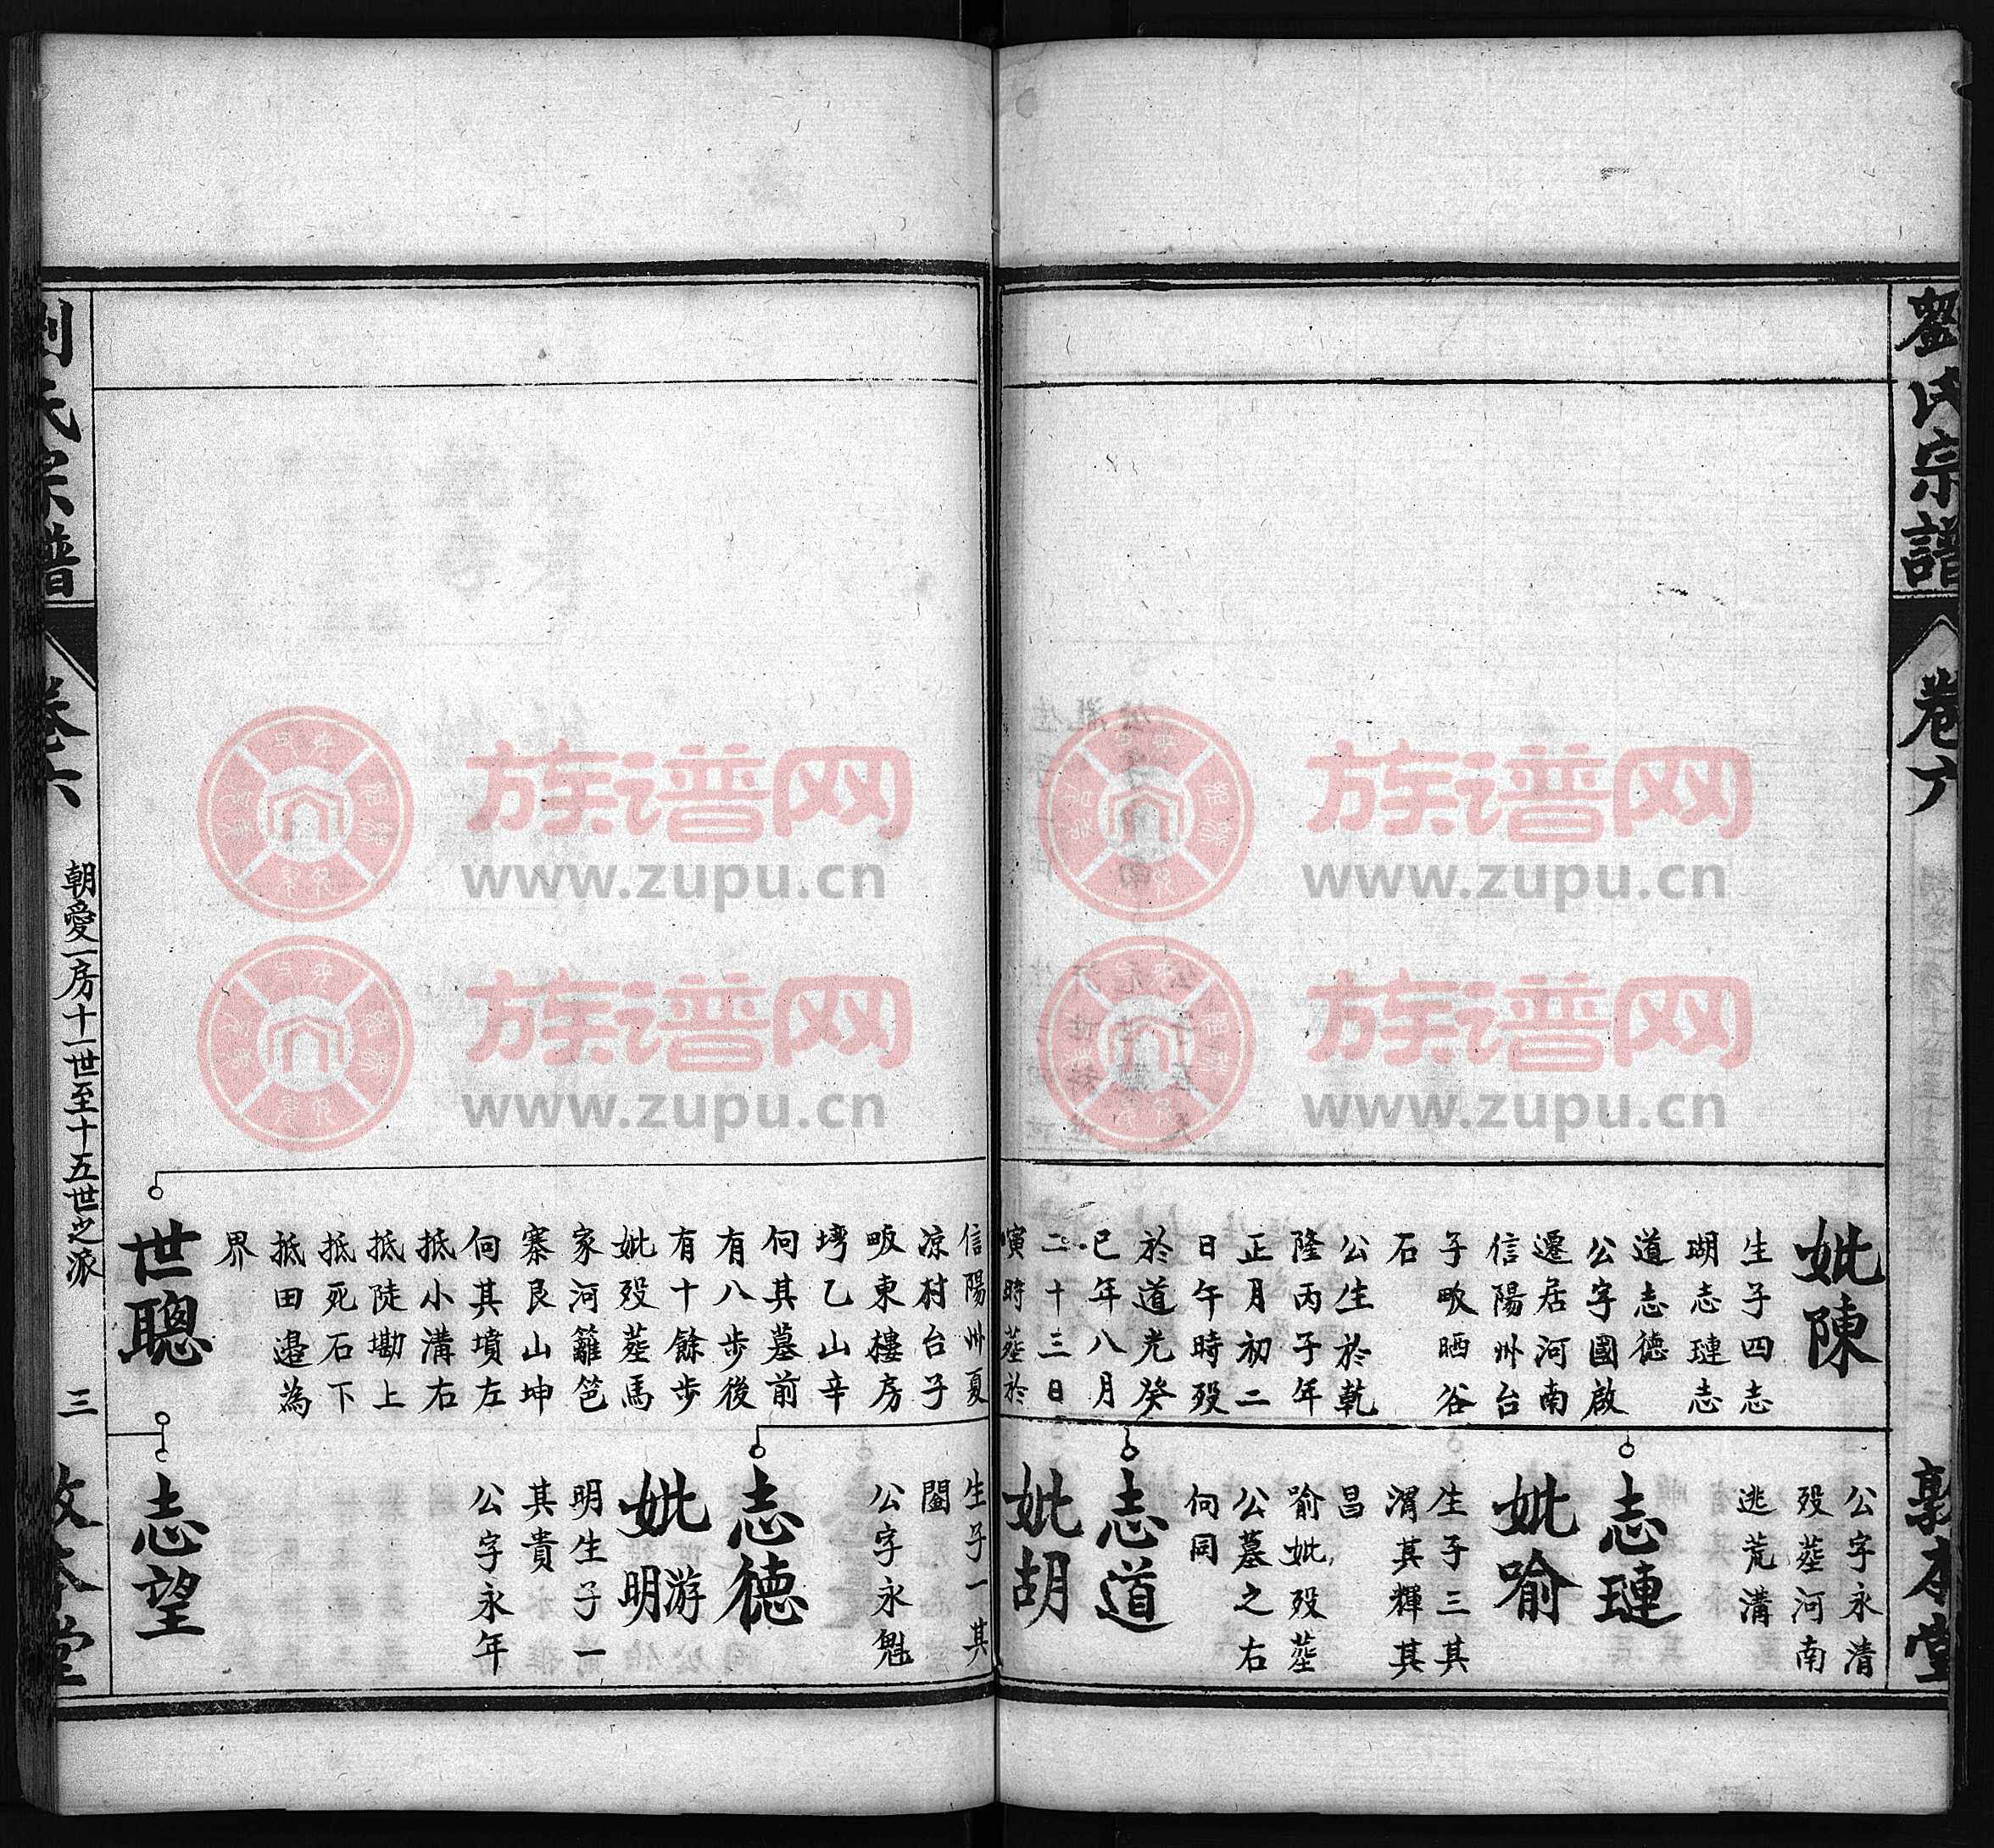 劉氏宗譜
卷六
敦本堂
妣陳
生子四志
瑚志璉志
道志德
公字國啟
遷居河南
信陽州台
子畈晒谷
石
公生於乾
隆丙子年
正月初二
日午時殁
於道光癸
巳年八月
二十三日
寅時塟於
公字永清
殁塟河南
逃荒溝
志璉
妣喻
生子三其
渭其輝其
昌
喻妣殁塟
公墓之右
向同
志道
妣胡
信陽州夏
凉村台子
畈東樓房
塆乙山辛
向其墓前
有八步後
有十餘步
妣殁塟馬
家河籬笆
寨艮山坤
向其墳左
抵小溝右
抵陡墈上
抵死石下
抵田邉為
界
世聰
生子一其
闓
公字永魁
志德
妣游
明
明生子一
其貴
公字永年
志望
劉氏宗譜
卷六
朝愛一房十一世至十五世之派
三
敦本堂
族谱网
www.zupu.cn
族谱网
www.zupu.cn
族谱网
www.zupu.cn
族谱网
www.zupu.cn